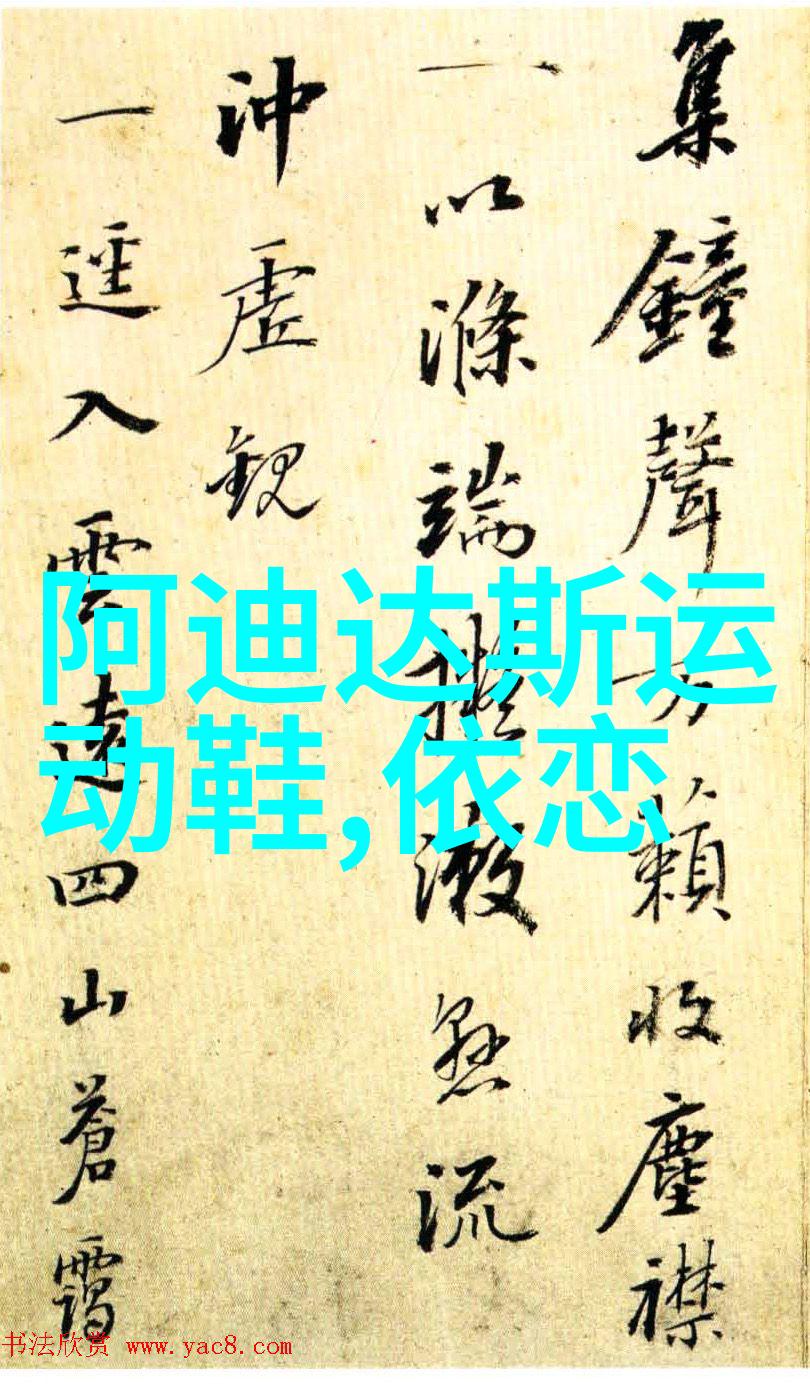 集鐘聲万籟收塵襟
一以滌端擬激懸流
沖虛觀
一逕入雲遠四山蒼靄
阿迪达斯运
动鞋,依恋
书法欣赏 www.yac8.com